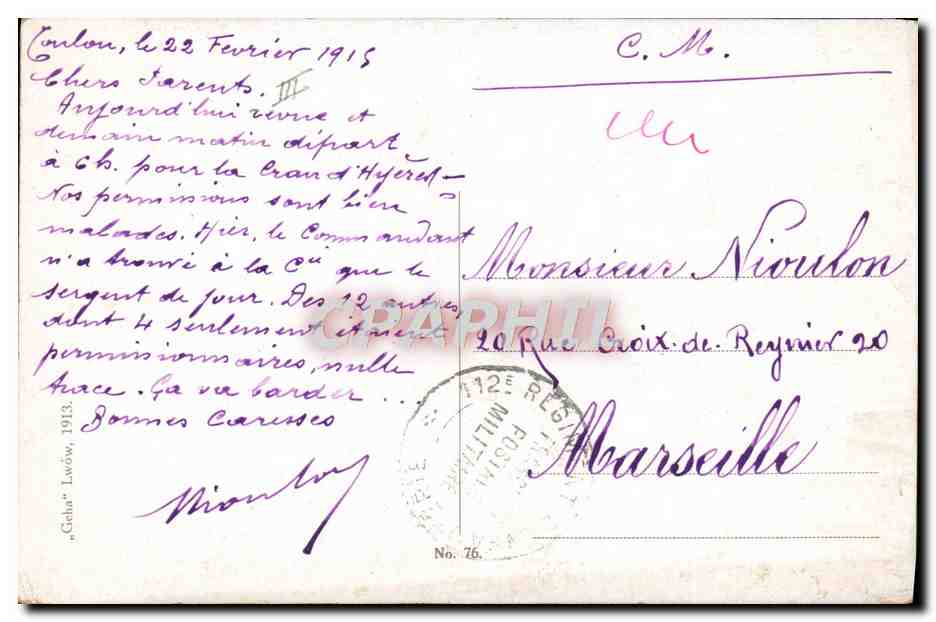 Toulon, le 22 Fevrier 1915
Chers Parents. III
Aujourd'hui revue et
demain matin départ
à 6h. pour la Crau d'Hyères -
Nos permissions sont bien
malades. Hier, le Commandant
n'a trouvé à la Cie que le
sergent de jour. Des 12 autres,
dont 4 seulement étaient
permissionnaires, nulle
trace. Ça va barder ...
Bonnes Caresses
Nioulon
C. M.
Monsieur Nioulon
20 Rue Croix-de-Reynier 20
Marseille
112E REGIMENT
POSTAL
MILITAIRE
„Geha" Lwów, 1913.
No. 76.
CPAPHIL